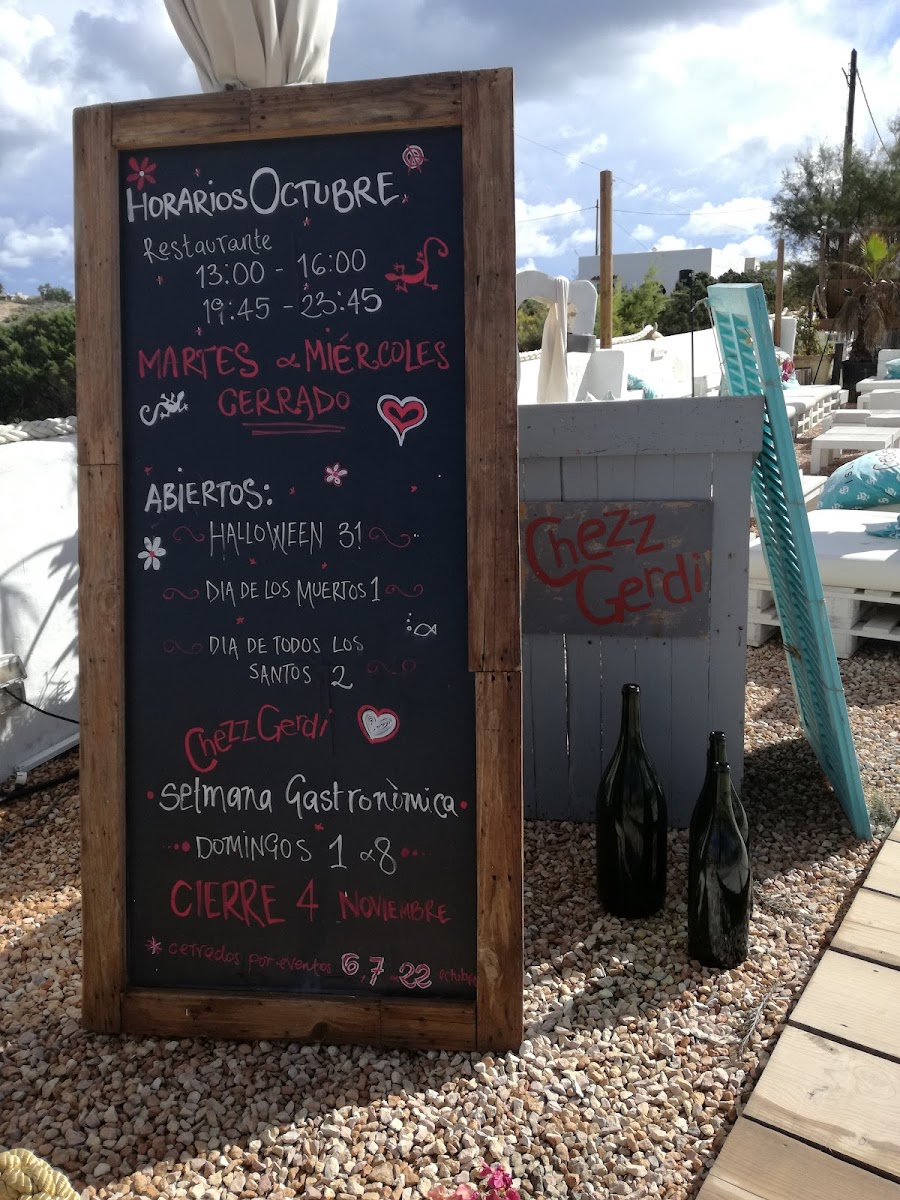 HORARIOS OCTUBRE
Restaurante
13:00 - 16:00
19:45 - 23:45
MARTES & MIÉRCOLES
CERRADO
ABIERTOS:
HALLOWEEN 31
DIA DE LOS MUERTOS 1
DIA DE TODOS LOS
SANTOS 2
Chezz Gerdi
Setmana Gastronòmica
DOMINGOS 1 & 8
CIERRE 4 NOVIEMBRE
* cerrados por eventos 6, 7 22 octubre
Chezz
Gerdi